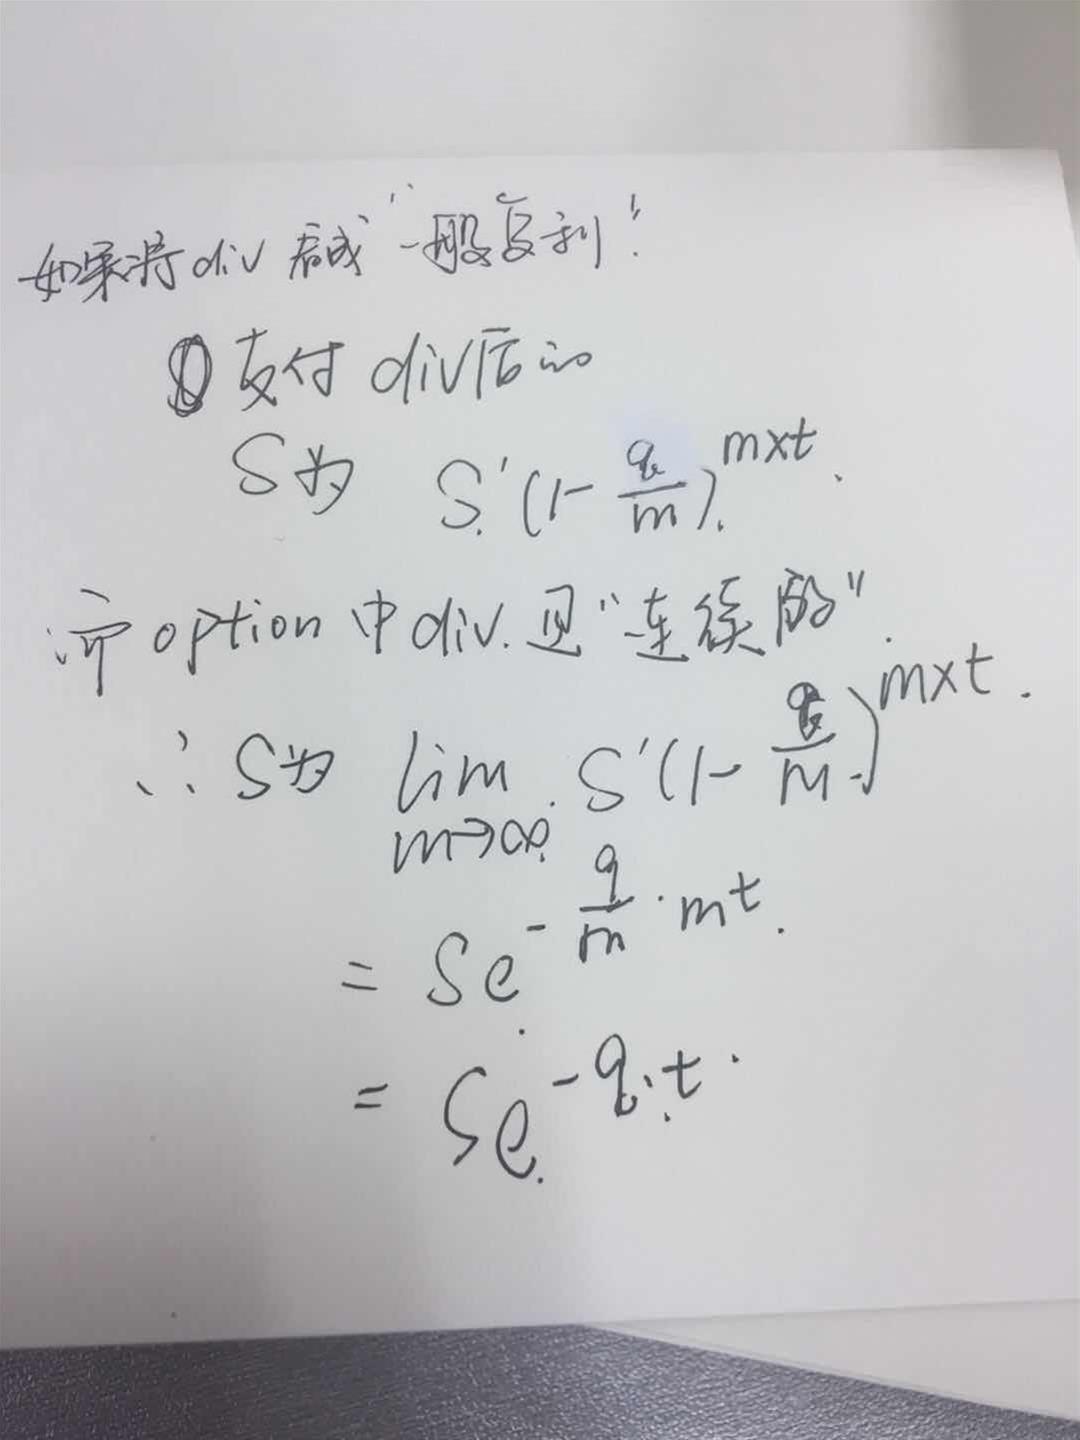 如果将div看成"一般复利"
① 支付div后的
S为 S'(1-q/m)^{m×t}.
而option中div.是"连续的".
∴S为 lim_{m→∞} S'(1-q/m)^{m×t}.
= Se^{-q/m·mt}.
= Se^{-q·t}.